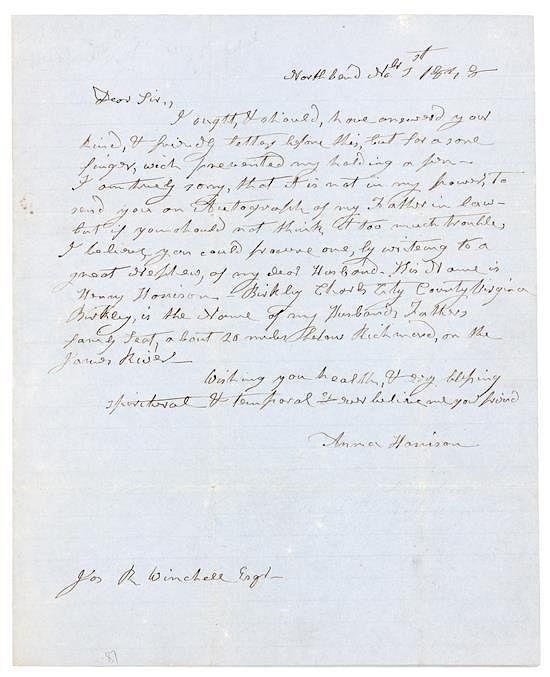 North bend Nobr 1st
Dear Sir,,
I ought, & should, have answered your
kind, & friendly letter, before this, but for a sore
finger, wich prevented my holding a pen -
I am truly sorry, that it is not in my power, to
send you an Autograph of my Father in law -
but if you should not think it too much trouble,
I believe, you could procure one, by writeing to a
great Nephew, of my dear Husband - His Name is
Henry Harrison - Birkley Charls City County Virginia
Birkley, is the Name of my Husbands Fathers
family Seat, about 20 miles below Richmond, on the
James River
Wishing you health, & evry blessing
& temporal ever believe me your friend
Anna Harrison
Jos R Winchell Esqr -